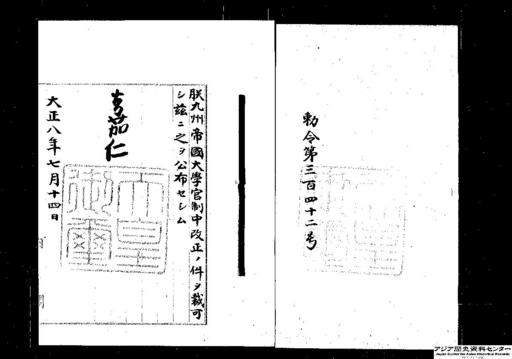 勅令第三百四十二号
朕九州帝國大學官制中改正ノ件ヲ裁可
シ茲ニ之ヲ公布セシム
嘉仁
天皇御璽
大正八年七月十四日
アジア歴史資料センター
Japan Center for Asian Historical Records